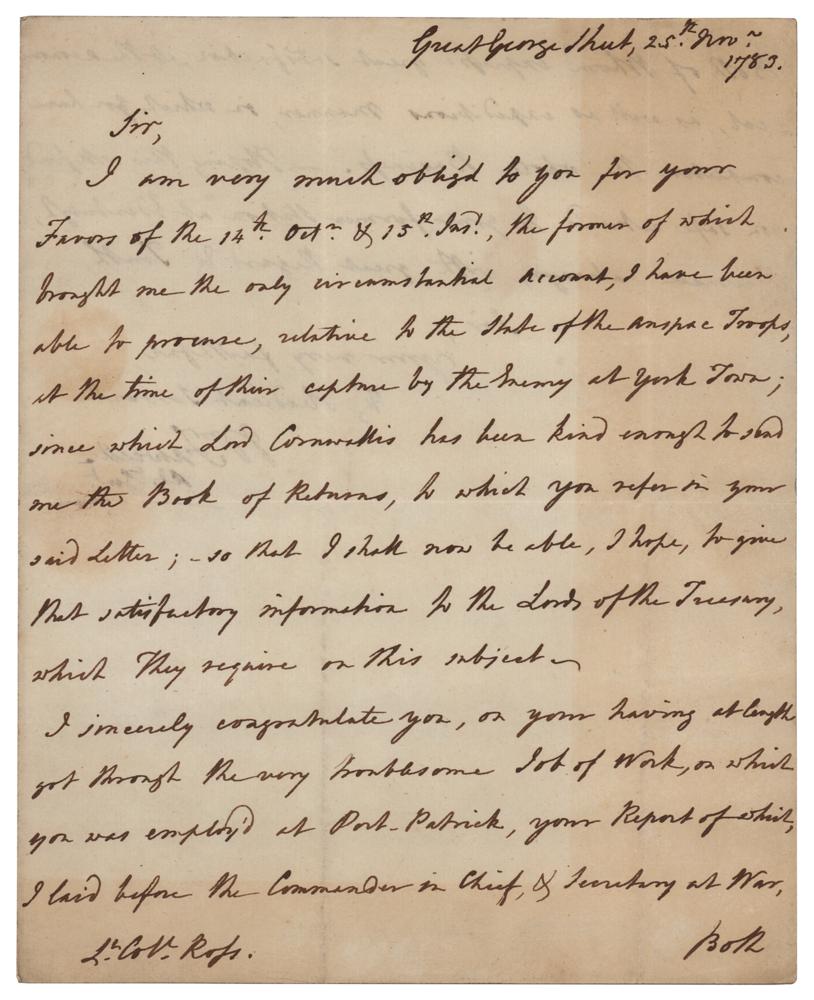 Great George Street, 25.th Nov.r
1783.
Sir,
I am very much oblig'd to you for your
Favors of the 14.th Oct.r & 15.th Ins.t, the former of which
brought me the only circumstantial Account, I have been
able to procure, relative to the State of the Anspac Troops,
at the time of their capture by the Enemy at York Town;
since which Lord Cornwallis has been kind enough to send
me the Book of Returns, to which you refer in your
said Letter; - so that I shall now be able, I hope, to give
that satisfactory information to the Lords of the Treasury,
which They require on this subject.
I sincerely congratulate you, on your having at length
got through the very troublesome Job of Work, on which
you was employ'd at Port-Patrick, your Report of which,
I laid before the Commander in Chief, & Secretary at War,
L.t Col.l Ross.
Both